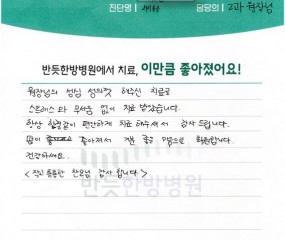 진단명 담당의 2과 원장님
반듯한방병원에서 치료, 이만큼 좋아졌어요!
원장님의 성심 성의껏 해주신 치료로
스트레스와 무서움 없이 치료 받았습니다.
항상 힘들같이 편안하게 치료해주셔서 감사드립니다.
몸이 좋아져서 기분 좋은 맘으로 퇴원합니다.
건강하세요.
감사합니다>
반듯한방병원